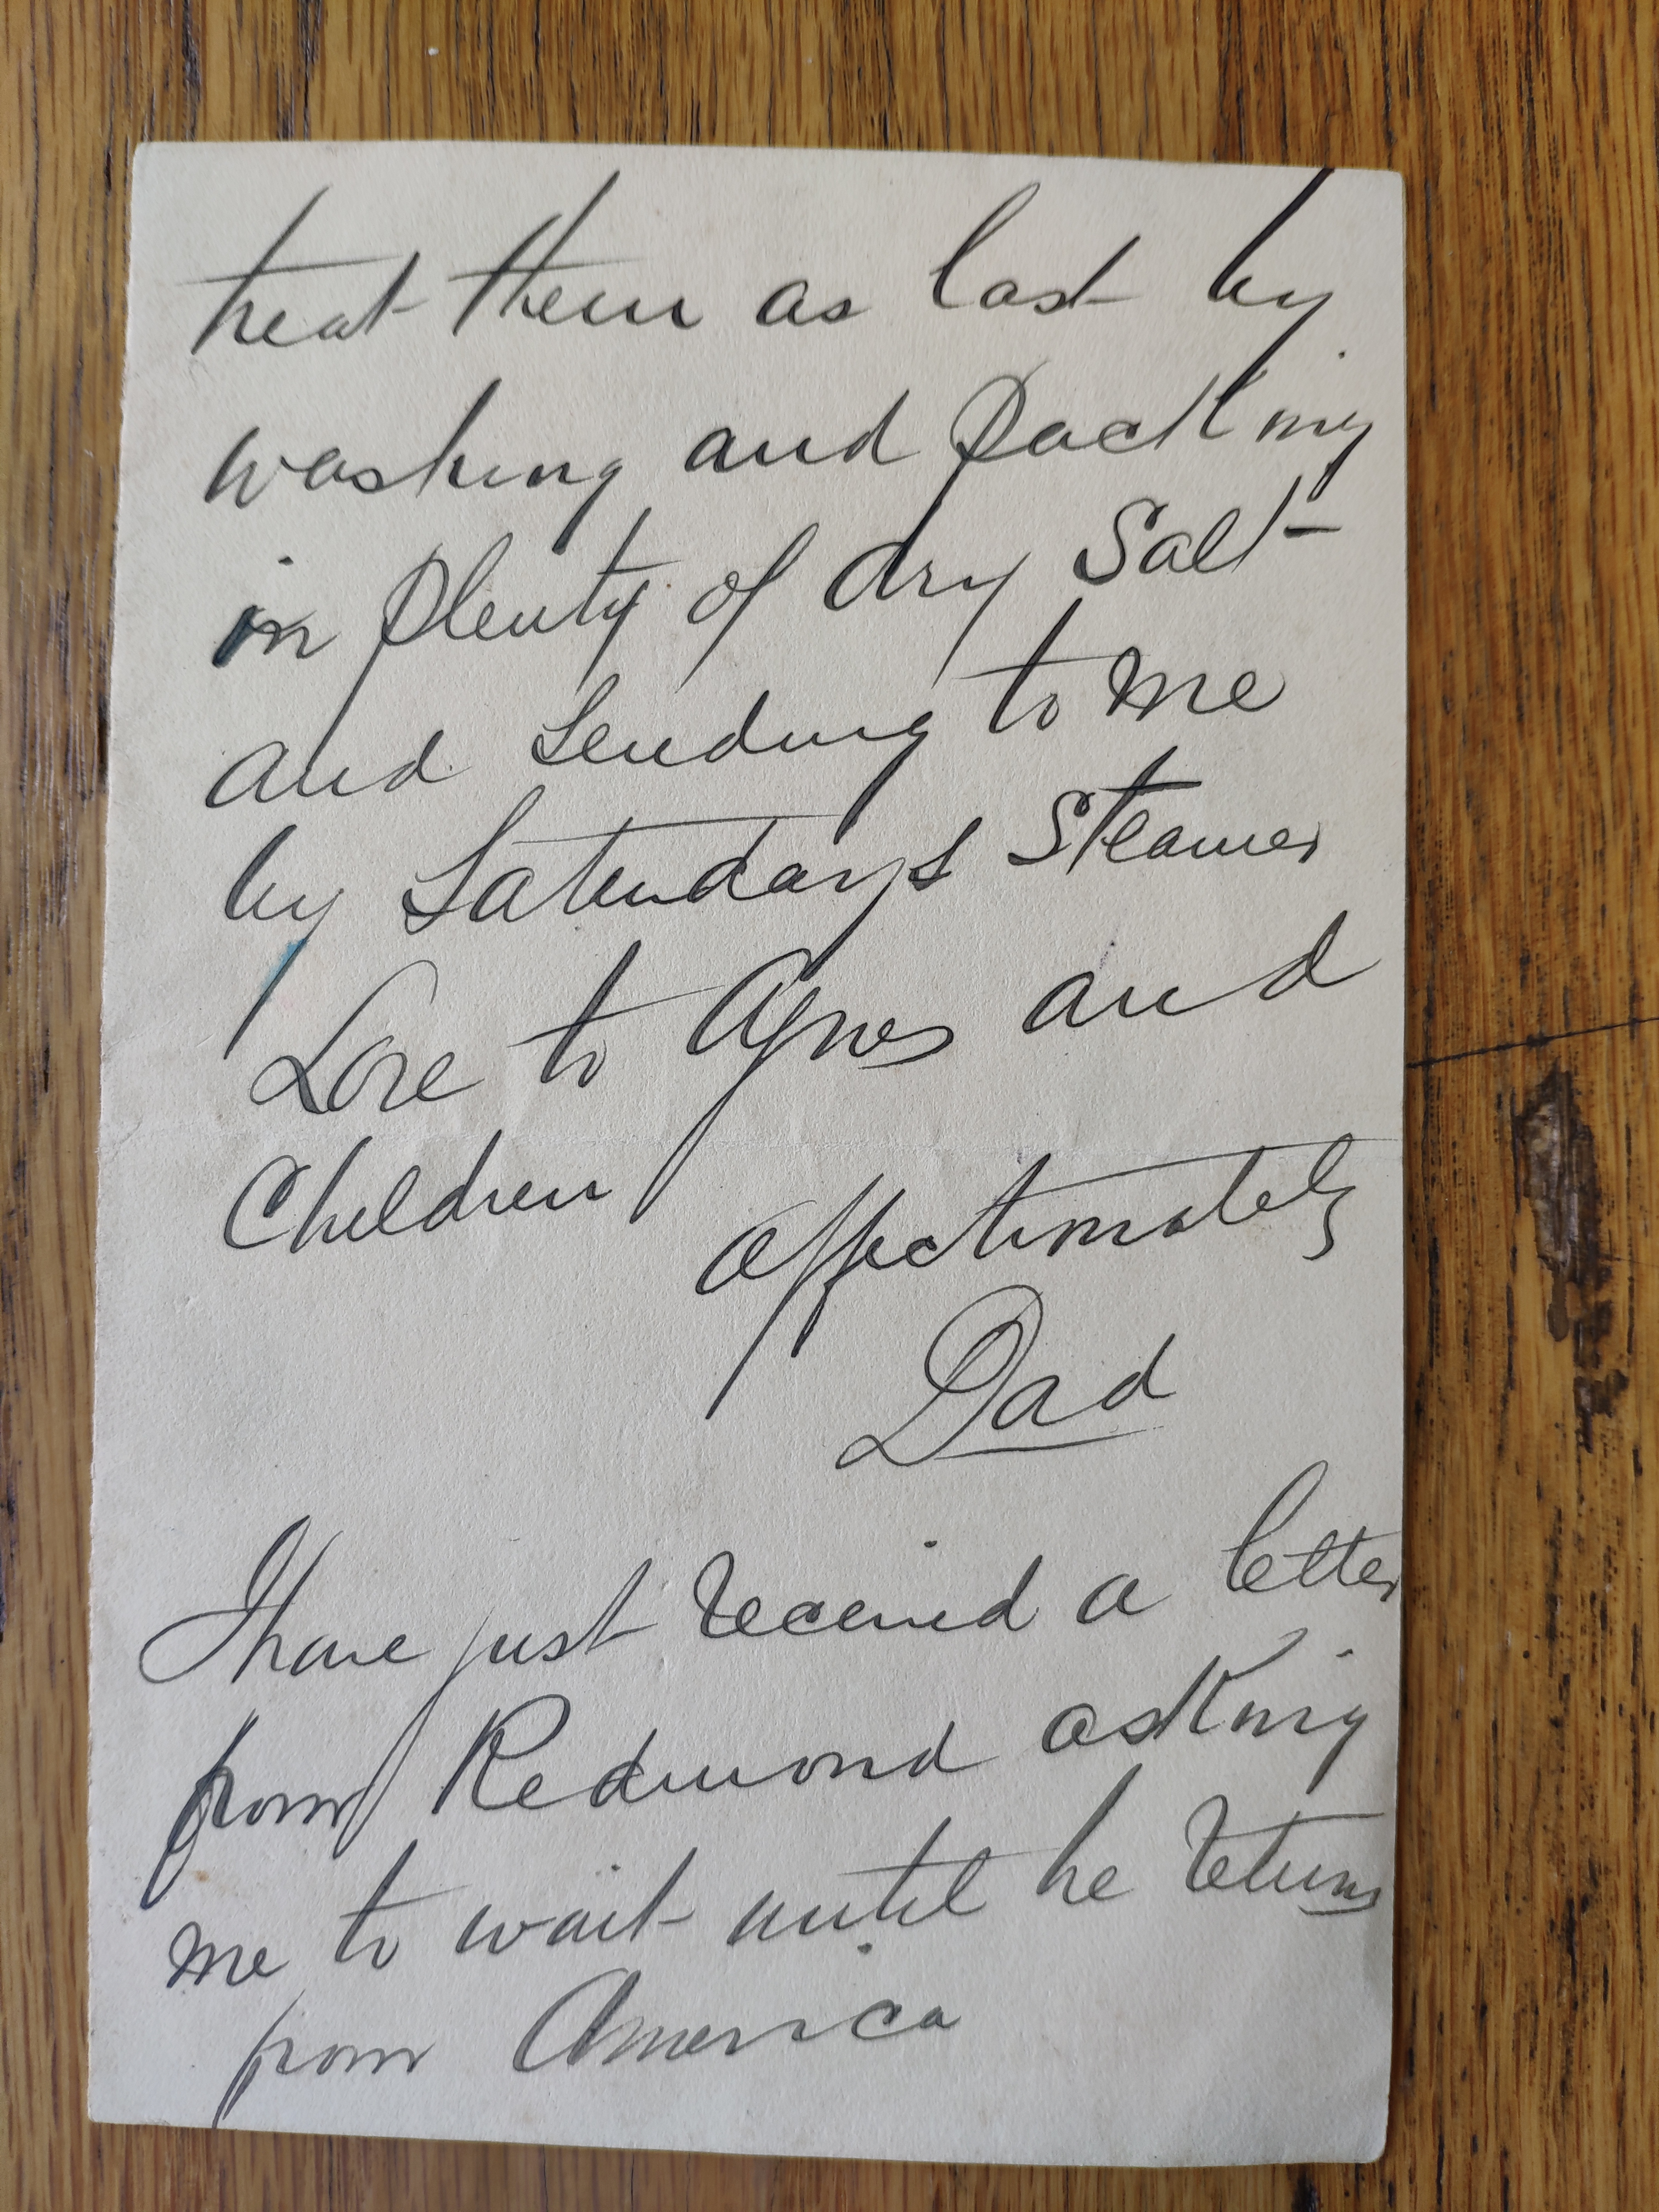 treat them as last by
washing and packing
in plenty of dry Salt
and sending to me
by Saturdays Steamer
Love to Agnes and
Children
affectionately
Dad
I have just received a letter
from Redmond asking
me to wait until he returns
from America